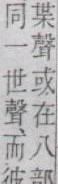 某聲或在八部
同一世聲而彼